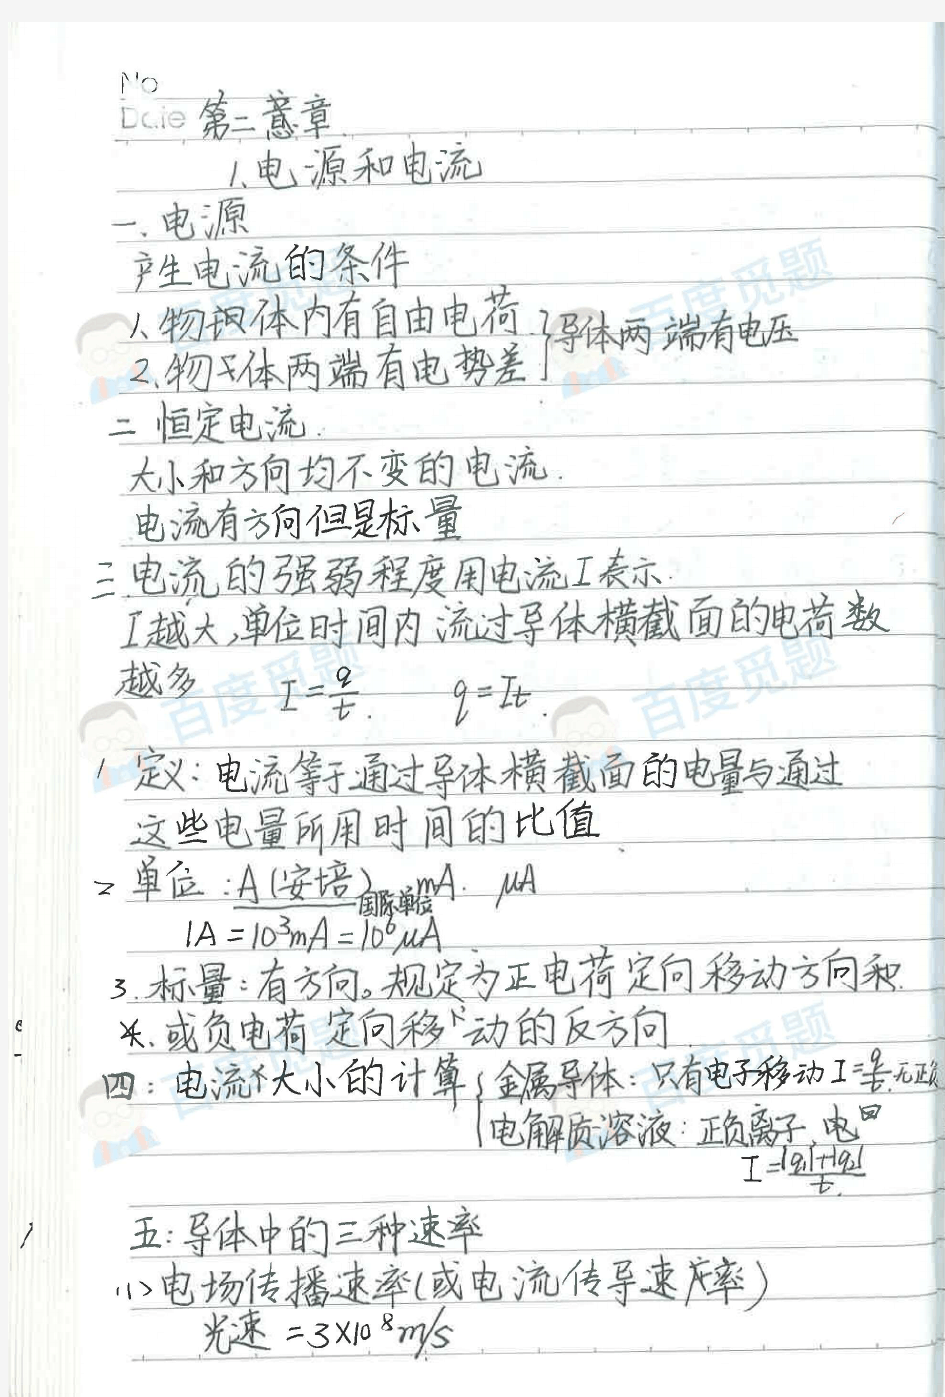 No
Date 第二意章.
1.电源和电流
一、电源
产生电流的条件
1、物体内有自由电荷 } 导体两端有电压
2、物体两端有电势差
二 恒定电流.
大小和方向均不变的电流.
电流有方向但是标量
三.电流的强弱程度用电流I表示.
I越大,单位时间内流过导体横截面的电荷数
越多 I=q/t. q=It.
1 定义:电流等于通过导体横截面的电量与通过
这些电量所用时间的比值
2 单位:A(安培) 国际单位 mA. μA
1A=10³mA=10⁶μA
3.标量:有方向。规定为正电荷定向移动方向
或负电荷定向移动的反方向.
四:电流大小的计算 { 金属导体:只有电子移动 I=q/t.无正负
电解质溶液:正负离子.电
I=|q₁|+|q₂|/t.
五:导体中的三种速率
(1)电场传播速率(或电流传导速率)
光速 =3×10⁸m/s
百度觅题
百度觅题
百度觅题
百度觅题
百度觅题
百度觅题